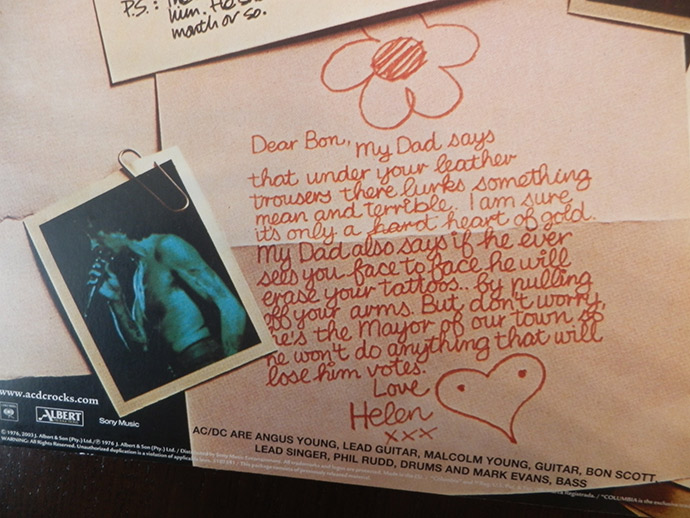 P.S.:
him. He
month or so.
Dear Bon, My Dad says
that under your leather
trousers there lurks something
mean and terrible. I am sure
it's only a hard heart of gold.
My Dad also says if he ever
sees you face to face he will
erase your tattoos... by pulling
off your arms. But don't worry,
he's the Mayor of our town so
he won't do anything that will
lose him votes.
Love
Helen
xxx
www.acdcrocks.com
ALBERT
Sony Music
AC/DC ARE ANGUS YOUNG, LEAD GUITAR, MALCOLM YOUNG, GUITAR, BON SCOTT,
LEAD SINGER, PHIL RUDD, DRUMS AND MARK EVANS, BASS
© 1976, 2003 J. Albert & Son (Pty.) Ltd./℗ 1976 J. Albert & Son (Pty.) Ltd. /
WARNING: All Rights Reserved. Unauthorized duplication is a violation of applicable